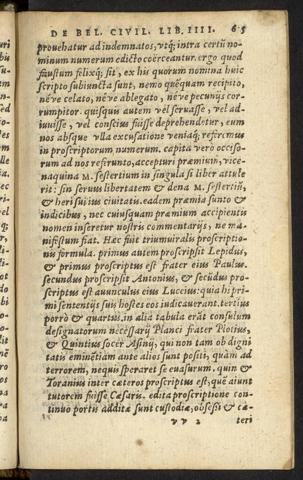 DE BEL. CIVIL. LIB. IIII. 65
prouehatur ad indemnatos, utq; intra certū no-
minum numerum edicto coërceantur. ergo quod
faustum felixq; sit, ex his quorum nomina huic
scripto subiuncta sunt, nemo quēquam recipito,
néve celato, néve ablegato, néve pecunijs cor-
rumpitor. quisquis autem uel seruasse, uel ad-
iuuisse, uel conscius fuisse deprehendetur, eum
nos absque ulla excusatione ueniaq; referimus
in proscriptorum numerum. capita verò occiso-
rum ad nos refrunto, accepturi præmium, uice-
naquina M. sestertium in singula si liber attule
rit: sin seruus libertatem & dena M. sestertiū,
& heri sui ius ciuitatis. eadem præmia sunto &
indicibus, nec cuiusquam præmium accipientis
nomen inseretur nostris commentarijs, ne ma-
nifestum fiat. Hæc fuit triumuiralis proscriptio-
nis formula. primus autem proscripsit Lepidus,
& primus proscriptus est frater eius Paulus.
secundus proscripsit Antonius, & secūdus pro-
scriptus est auunculus eius Lucius: quia hi pri
mi sententijs suis hostes eos iudicauerant. tertius
porrò & quartus, in alia tabula erāt consulum
designatorum necessarij Planci frater Plotius,
& Quintius socer Asinij, qui non tam ob digni
tatis eminētiam ante alios sunt positi, quàm ad
terrorem, nequis speraret se euasurum. quin &
Toranius inter cæteros proscriptus est, quē aiunt
tutorem fuisse Cæsaris. edita proscriptione con-
tinuo portis additæ sunt custodiæ, obsessi & cæ-
vv 2 teri